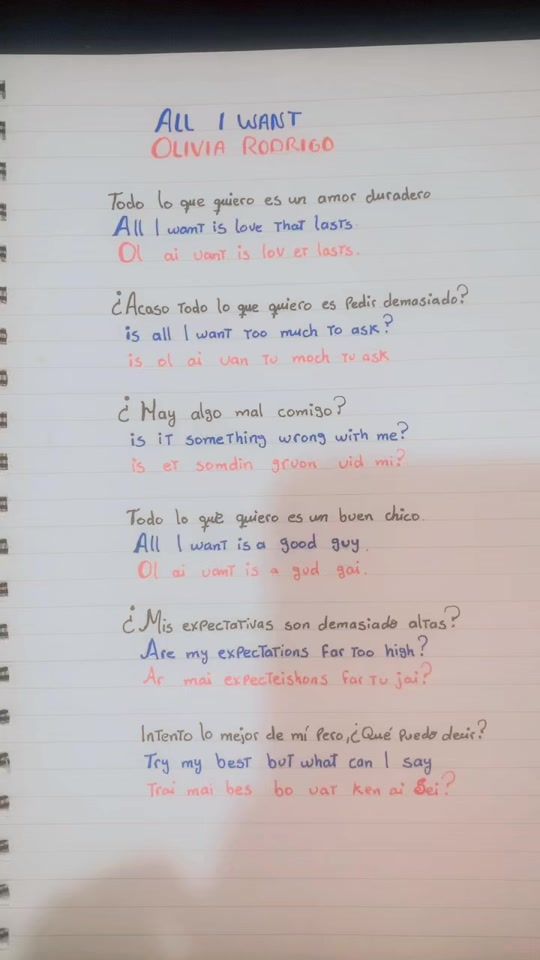 ALL I WANT
OLIVIA RODRIGO
Todo lo que quiero es un amor duradero
All I want is love that lasts
Ol ai uant is lov et lasts.
¿Acaso todo lo que quiero es pedir demasiado?
is all I want too much to ask?
is ol ai uan tu moch tu ask
¿Hay algo mal comigo?
is it something wrong with me?
is et somdin gruon uid mi?
Todo lo què quiero es un buen chico.
All I want is a good guy.
Ol ai uant is a gud gai.
¿Mis expectativas son demasiado altas?
Are my expectations far too high?
Ar mai expecteishons far tu jai?
Intento lo mejor de mí pero,¿Qué puedo decir?
Try my best but what can I say
Trai mai bes bo uat ken ai Sei?